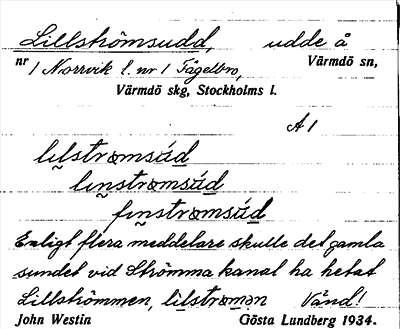 Lillströmsudd, udde å
nr 1 Norrvik l. nr 1 Fågelbro, Värmdö sn,
Värmdö skg, Stockholms l.
A 1
lilstrømsúd
linstrømsúd
finstrømsúd
Enligt flera meddelare skulle det gamla
sundet vid Strömma kanal ha hetat
Lillströmmen, lilstrømən Vänd!
John Westin Gösta Lundberg 1934.